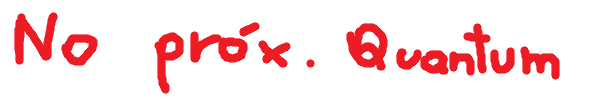 No próx. Quantum